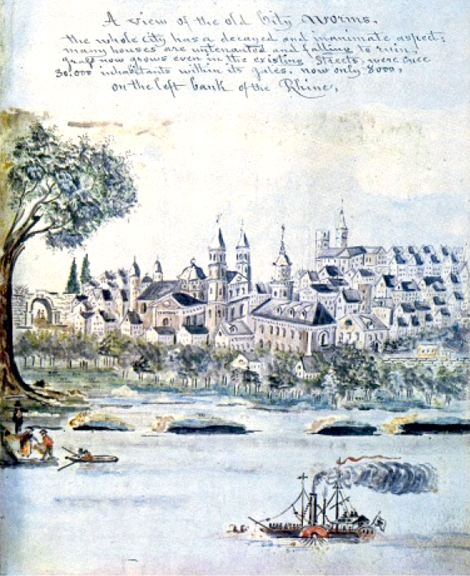 A view of the old City Worms.
the whole city has a decayed and inanimate aspect;
many houses are untenanted and falling to ruin,
grass now grows even in the existing Streets, were once
30.000 inhabitants within its gates, now only 8000,
on the left bank of the Rhine,